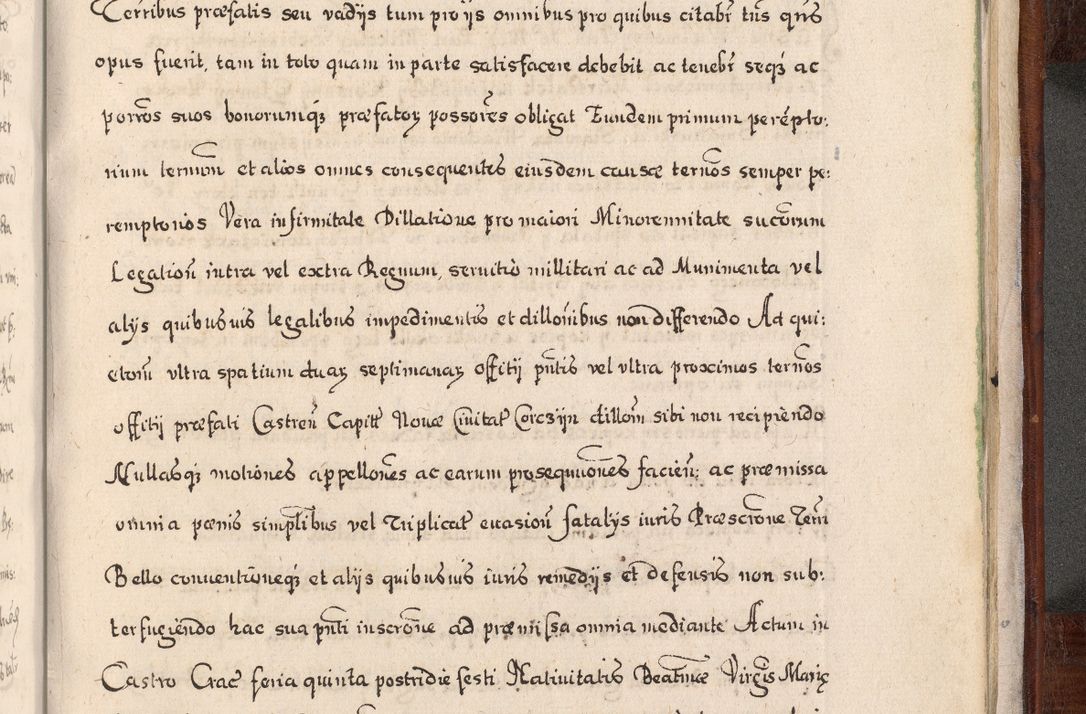 Terribus præfatis seu vadijs tum pro ijs omnibus pro quibus citabr̃ tũs qñs
opus fuerit, tam in toto quam in parte satisfacere debebit ac tenebr̃ seqȝ ac
porr̃os suos bonorumqȝ præfatoꝝ possor̃es obligat Eundem primum perẽpto:
rium terminũ et alios omnes consequentes eiusdem causæ ternõs semper pe:
remptorios Vera infirmitate Dillatione pro maiori Minorennitate sucorum
Legationũ intra vel extra Regnum, seruitio millitari ac ad Munimenta vel
alijs quibusuis legalibus impedimentis et dillonibus non differendo Ad qui:
etom̃ vltra spatium duaꝝ septimanaꝝ offitij pñtis vel vltra proximos ternõs
offitij præfati Castreñ Capitt Nouæ Ciuitat̃ Corczijn dillom̃ sibi non recipiendo
Nullasqȝ motiones appellones ac earum prosequutiones facieñ: ac præmissa
omnia pænis simplibus vel Triplicat̃ euasioñ fatalijs iuris Præscrone Terrũ
Bello conuentioneqȝ et alijs quibusuis iuris remedijs et defensis non sub:
terfugiendo hac sua pñti inscrone ad præmissa omnia mediante Actum in
Castro Crac̃ feria quinta postridie festi Natiuitatis Beatmæ Virgis Marię